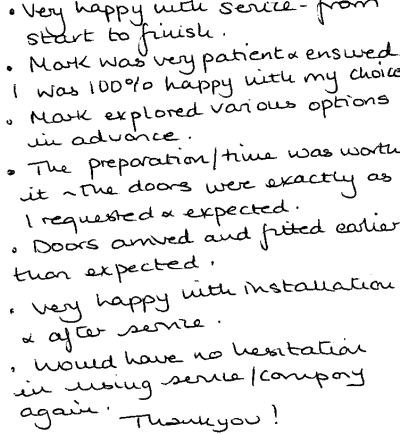 • Very happy with service - from
start to finish.
• Mark was very patient & ensured
I was 100% happy with my choice
• Mark explored various options
in advance.
• The preparation/time was worth
it ~ the doors were exactly as
I requested & expected.
• Doors arrived and fitted earlier
than expected.
• Very happy with installation
& after service.
• Would have no hesitation
in using service/company
again.
Thankyou!